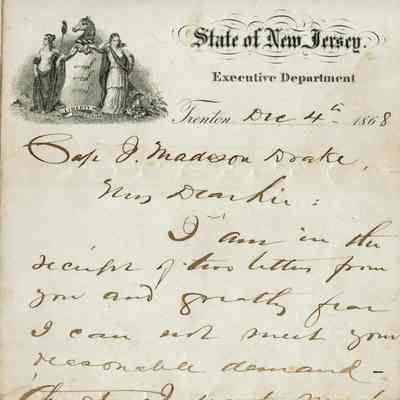 State of New Jersey.
Executive Department
Trenton Dec 4th 1868
Cap J. Madison Drake,
My Dear Sir:
I am in the
receipt of two letters from
you and greatly fear
I can not meet your
reasonable demand –